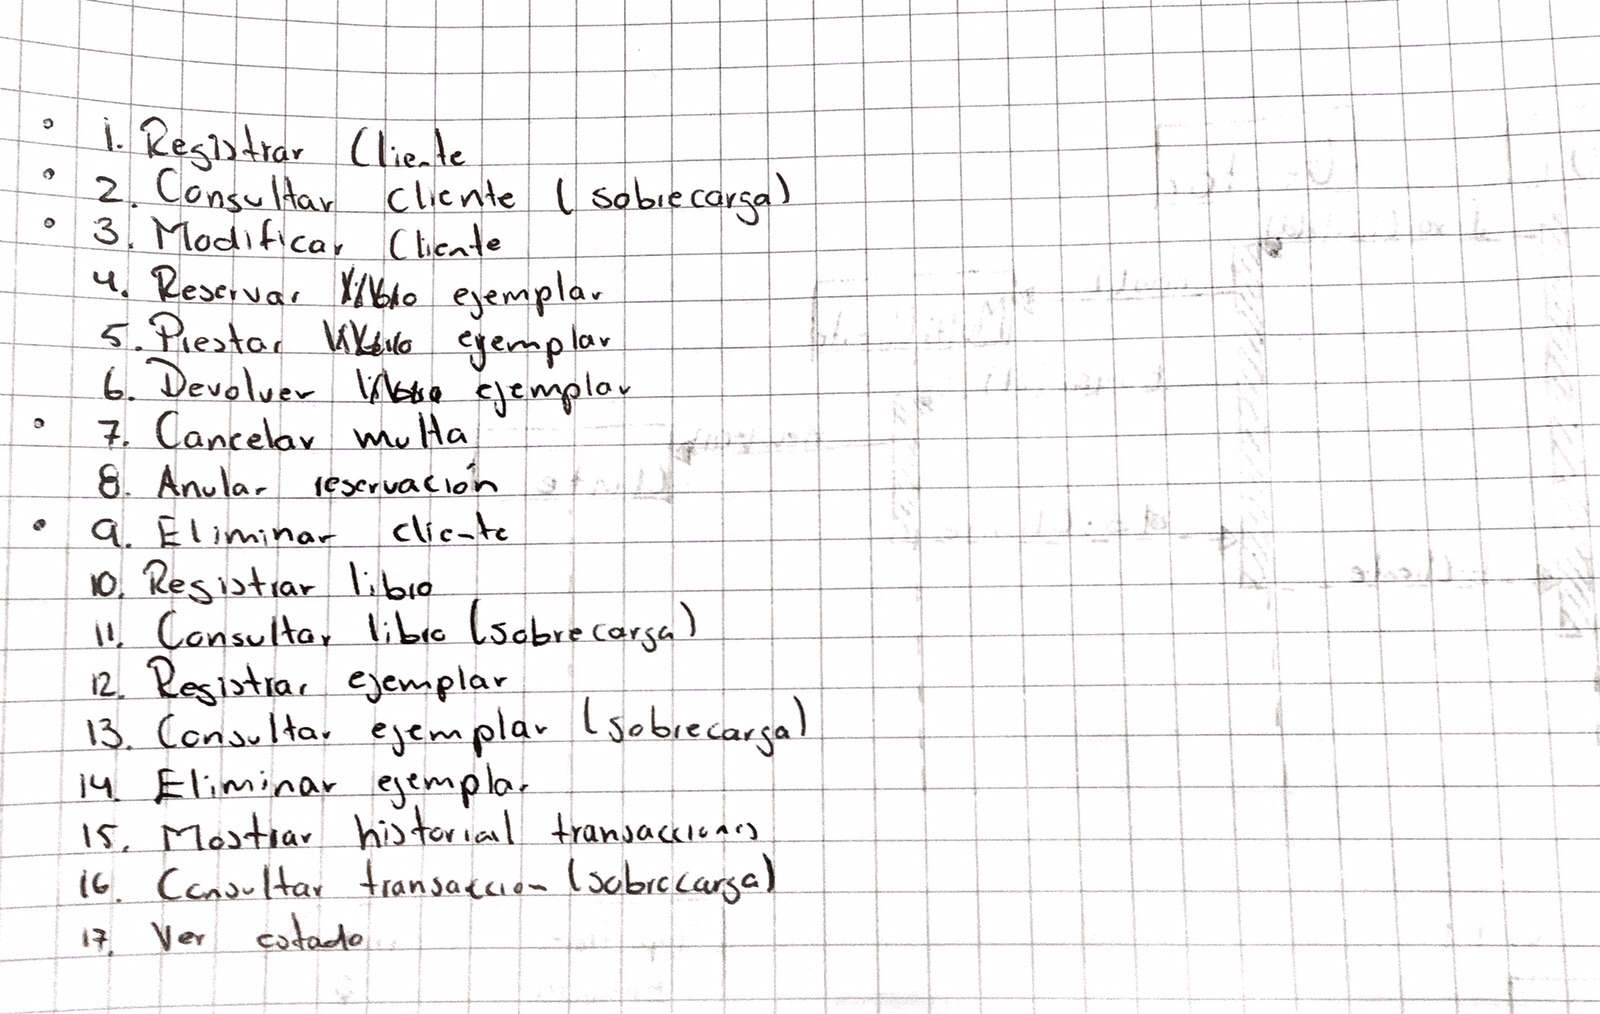 ° 1. Registrar Cliente
° 2. Consultar Cliente (sobrecarga)
° 3. Modificar Cliente
4. Reservar ejemplar
5. Prestar ejemplar
6. Devolver ejemplar
° 7. Cancelar multa
8. Anular reservación
° 9. Eliminar cliente
10. Registrar libro
11. Consultar libro (sobrecarga)
12. Registrar ejemplar
13. Consultar ejemplar (sobrecarga)
14. Eliminar ejemplar
15. Mostrar historial transacciones
16. Consultar transaccion (sobrecarga)
17. Ver estado